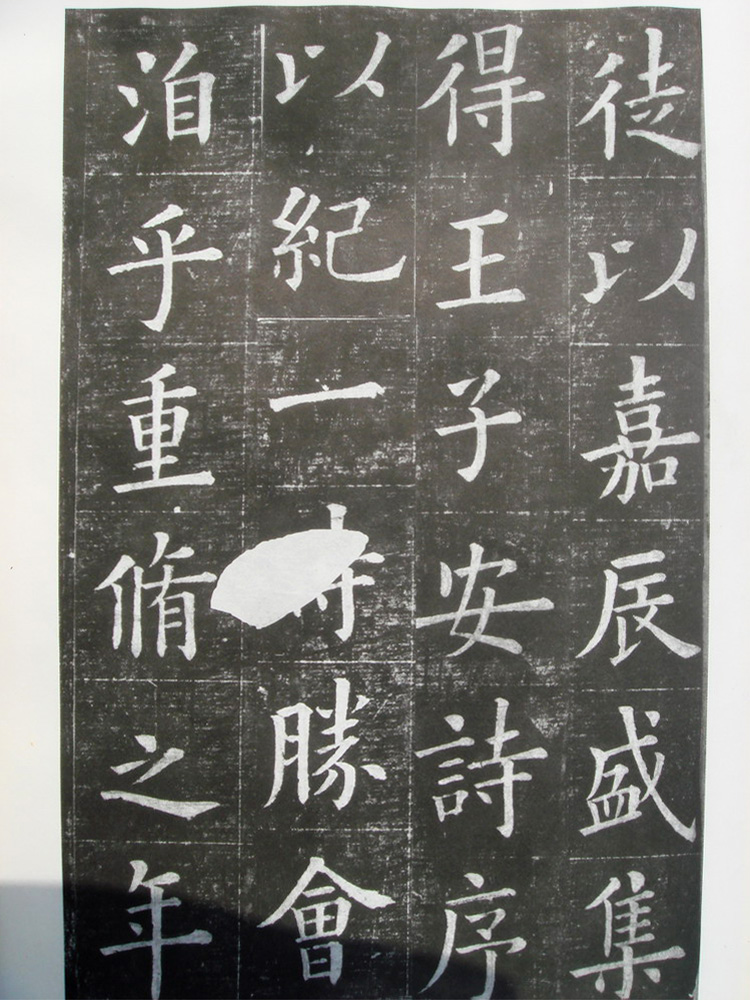 徒以嘉辰盛集
得王子安詩序
以紀一時勝會
洎乎重脩之年